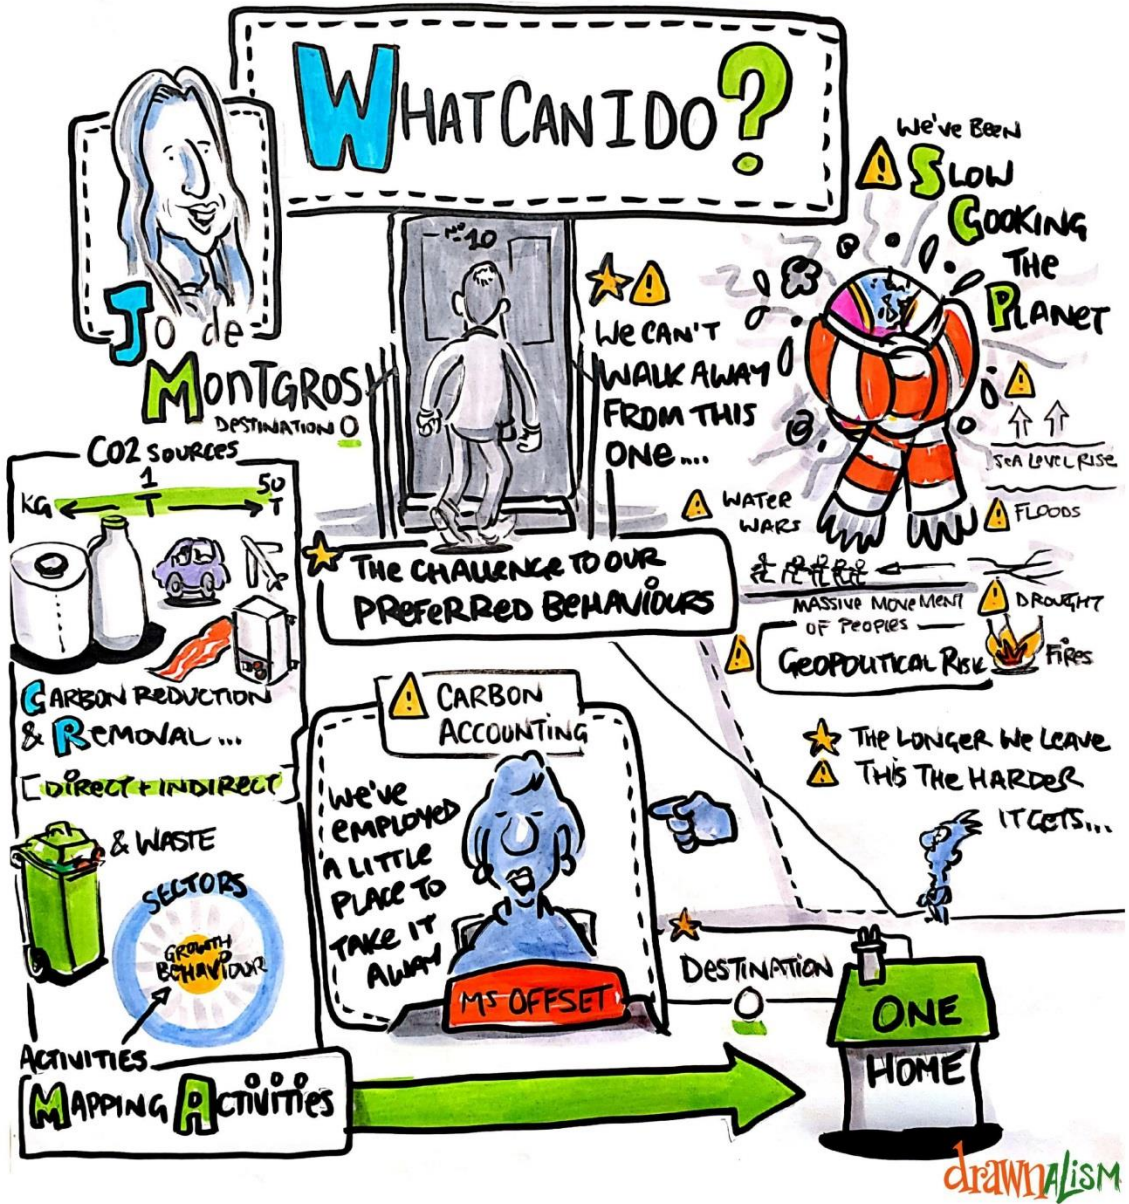 WHAT CAN I DO?
Jo de
MONTGROS
DESTINATION O
10
WE CAN'T
WALK AWAY
FROM THIS
ONE....
We've BEEN
SLOW
COOKING
THE
PLANET
SEA LEVEL RISE
FLOODS
WATER
WARS
DROUGHT
MASSIVE MOVEMENT
OF PEOPLES
GEOPOLITICAL RISK
FiRes
THE CHALLENGE TO OUR
PREFERRED BEHAVIOURS
CO2 SOURCES
KG 1 T 50 T
CARBON REDUCTION
& REMOVAL...
[DIRECT + INDIRECT]
& WASTE
SECTORS
GROWTH
BEHAVIOUR
ACTIVITIES
MAPPING ACTIVITIES
CARBON
ACCOUNTING
WE'VE
EMPLOYED
A LITTLE
PLACE TO
TAKE IT
AWAY
MS OFFSET
THE LONGER WE LEAVE
THIS THE HARDER
IT GETS...
DESTINATION
O
ONE
HOME
drawnALISM